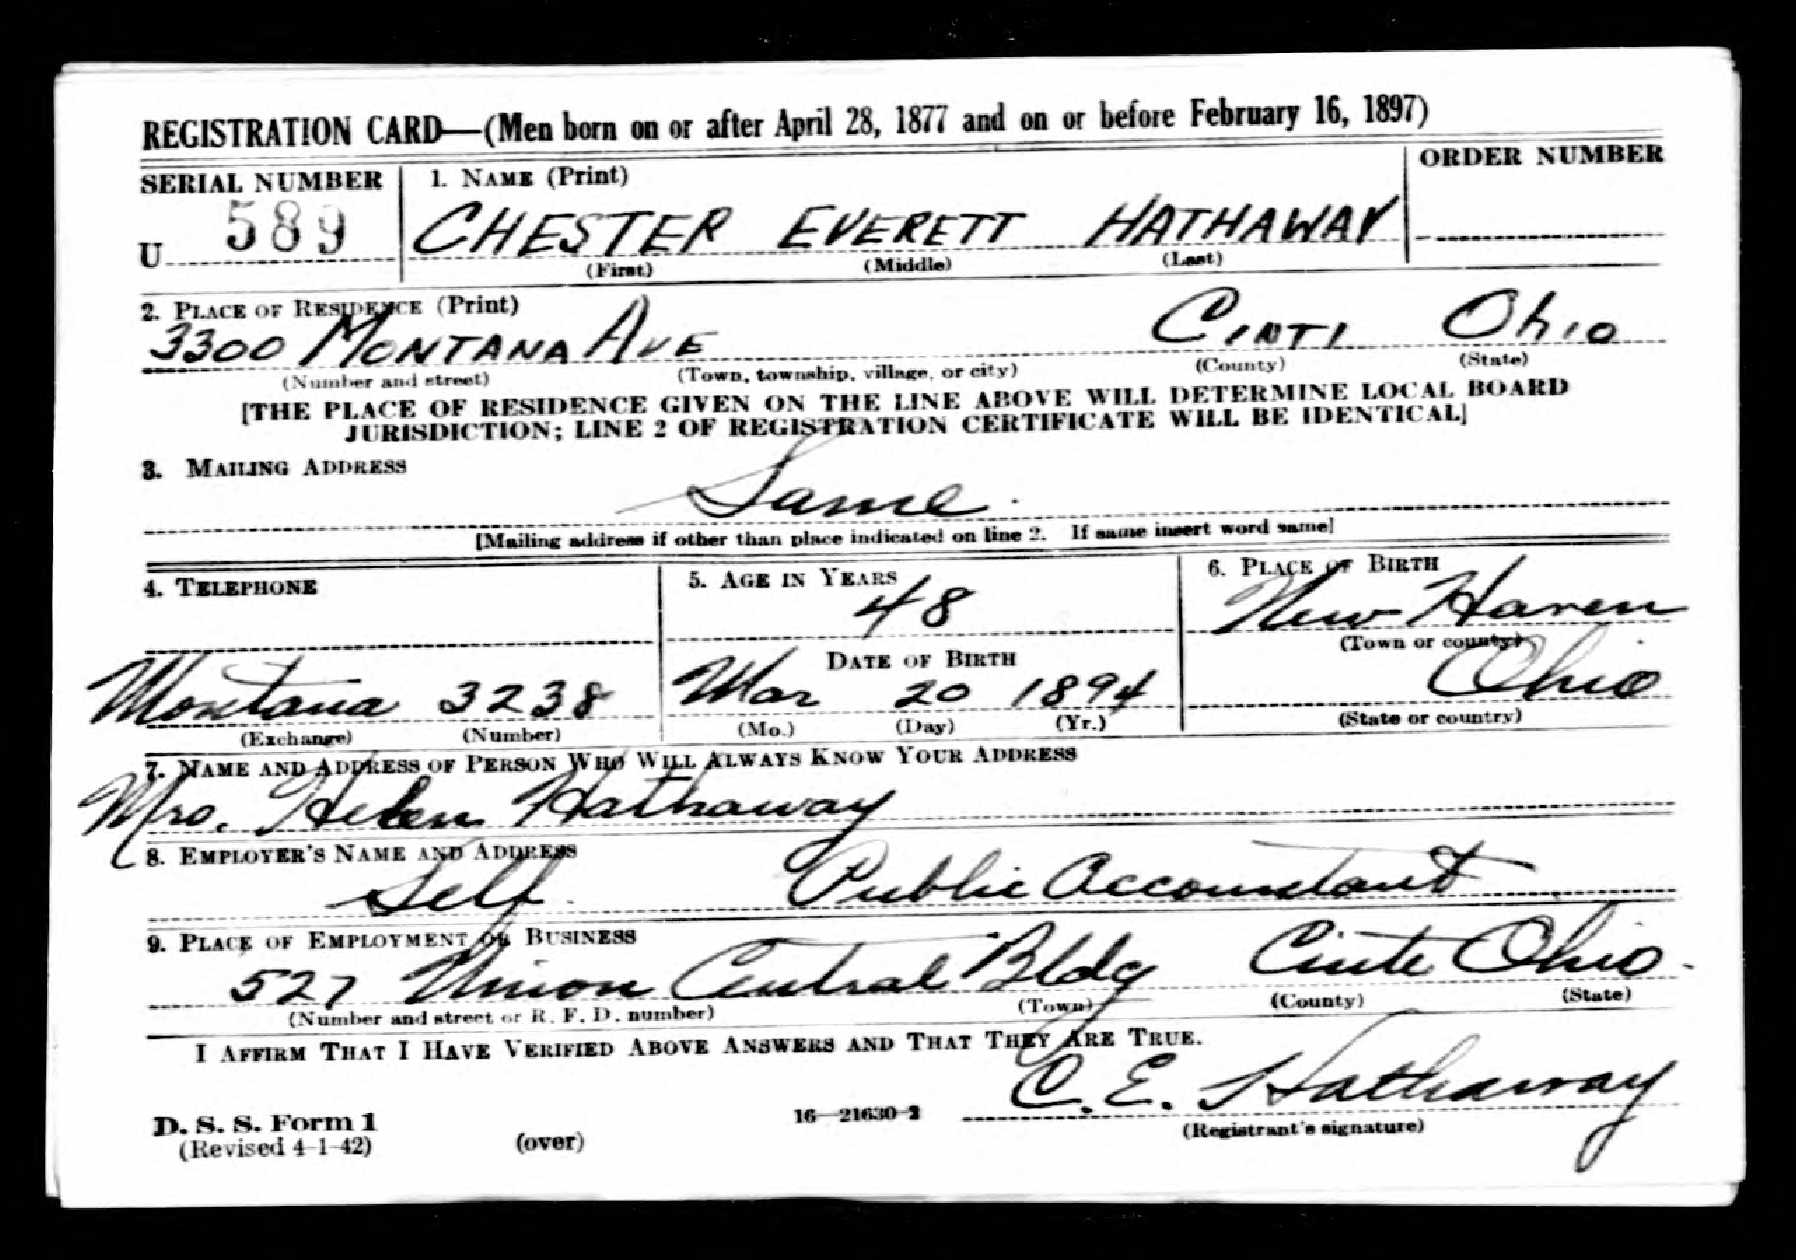 REGISTRATION CARD—(Men born on or after April 28, 1877 and on or before February 16, 1897)
SERIAL NUMBER 1. NAME (Print) ORDER NUMBER
U 589 CHESTER EVERETT HATHAWAY
(First) (Middle) (Last)
2. PLACE OF RESIDENCE (Print)
3300 MONTANA AVE CINTI OHIO
(Number and street) (Town, township, village, or city) (County) (State)
[THE PLACE OF RESIDENCE GIVEN ON THE LINE ABOVE WILL DETERMINE LOCAL BOARD
JURISDICTION; LINE 2 OF REGISTRATION CERTIFICATE WILL BE IDENTICAL]
3. MAILING ADDRESS
Same.
[Mailing address if other than place indicated on line 2. If same insert word same]
4. TELEPHONE 5. AGE IN YEARS 6. PLACE OF BIRTH
48 New Haven
(Town or county)
DATE OF BIRTH Ohio
Montana 3238 Mar 20 1894
(Exchange) (Number) (Mo.) (Day) (Yr.) (State or country)
7. NAME AND ADDRESS OF PERSON WHO WILL ALWAYS KNOW YOUR ADDRESS
Mrs. Helen Hathaway
8. EMPLOYER'S NAME AND ADDRESS
Self. Public Accountant
9. PLACE OF EMPLOYMENT OR BUSINESS
527 Union Central Bldg Cinti Ohio.
(Number and street or R. F. D. number) (Town) (County) (State)
I AFFIRM THAT I HAVE VERIFIED ABOVE ANSWERS AND THAT THEY ARE TRUE.
C. E. Hathaway
D. S. S. Form 1 16—21630-2 (Registrant's signature)
(Revised 4-1-42) (over)